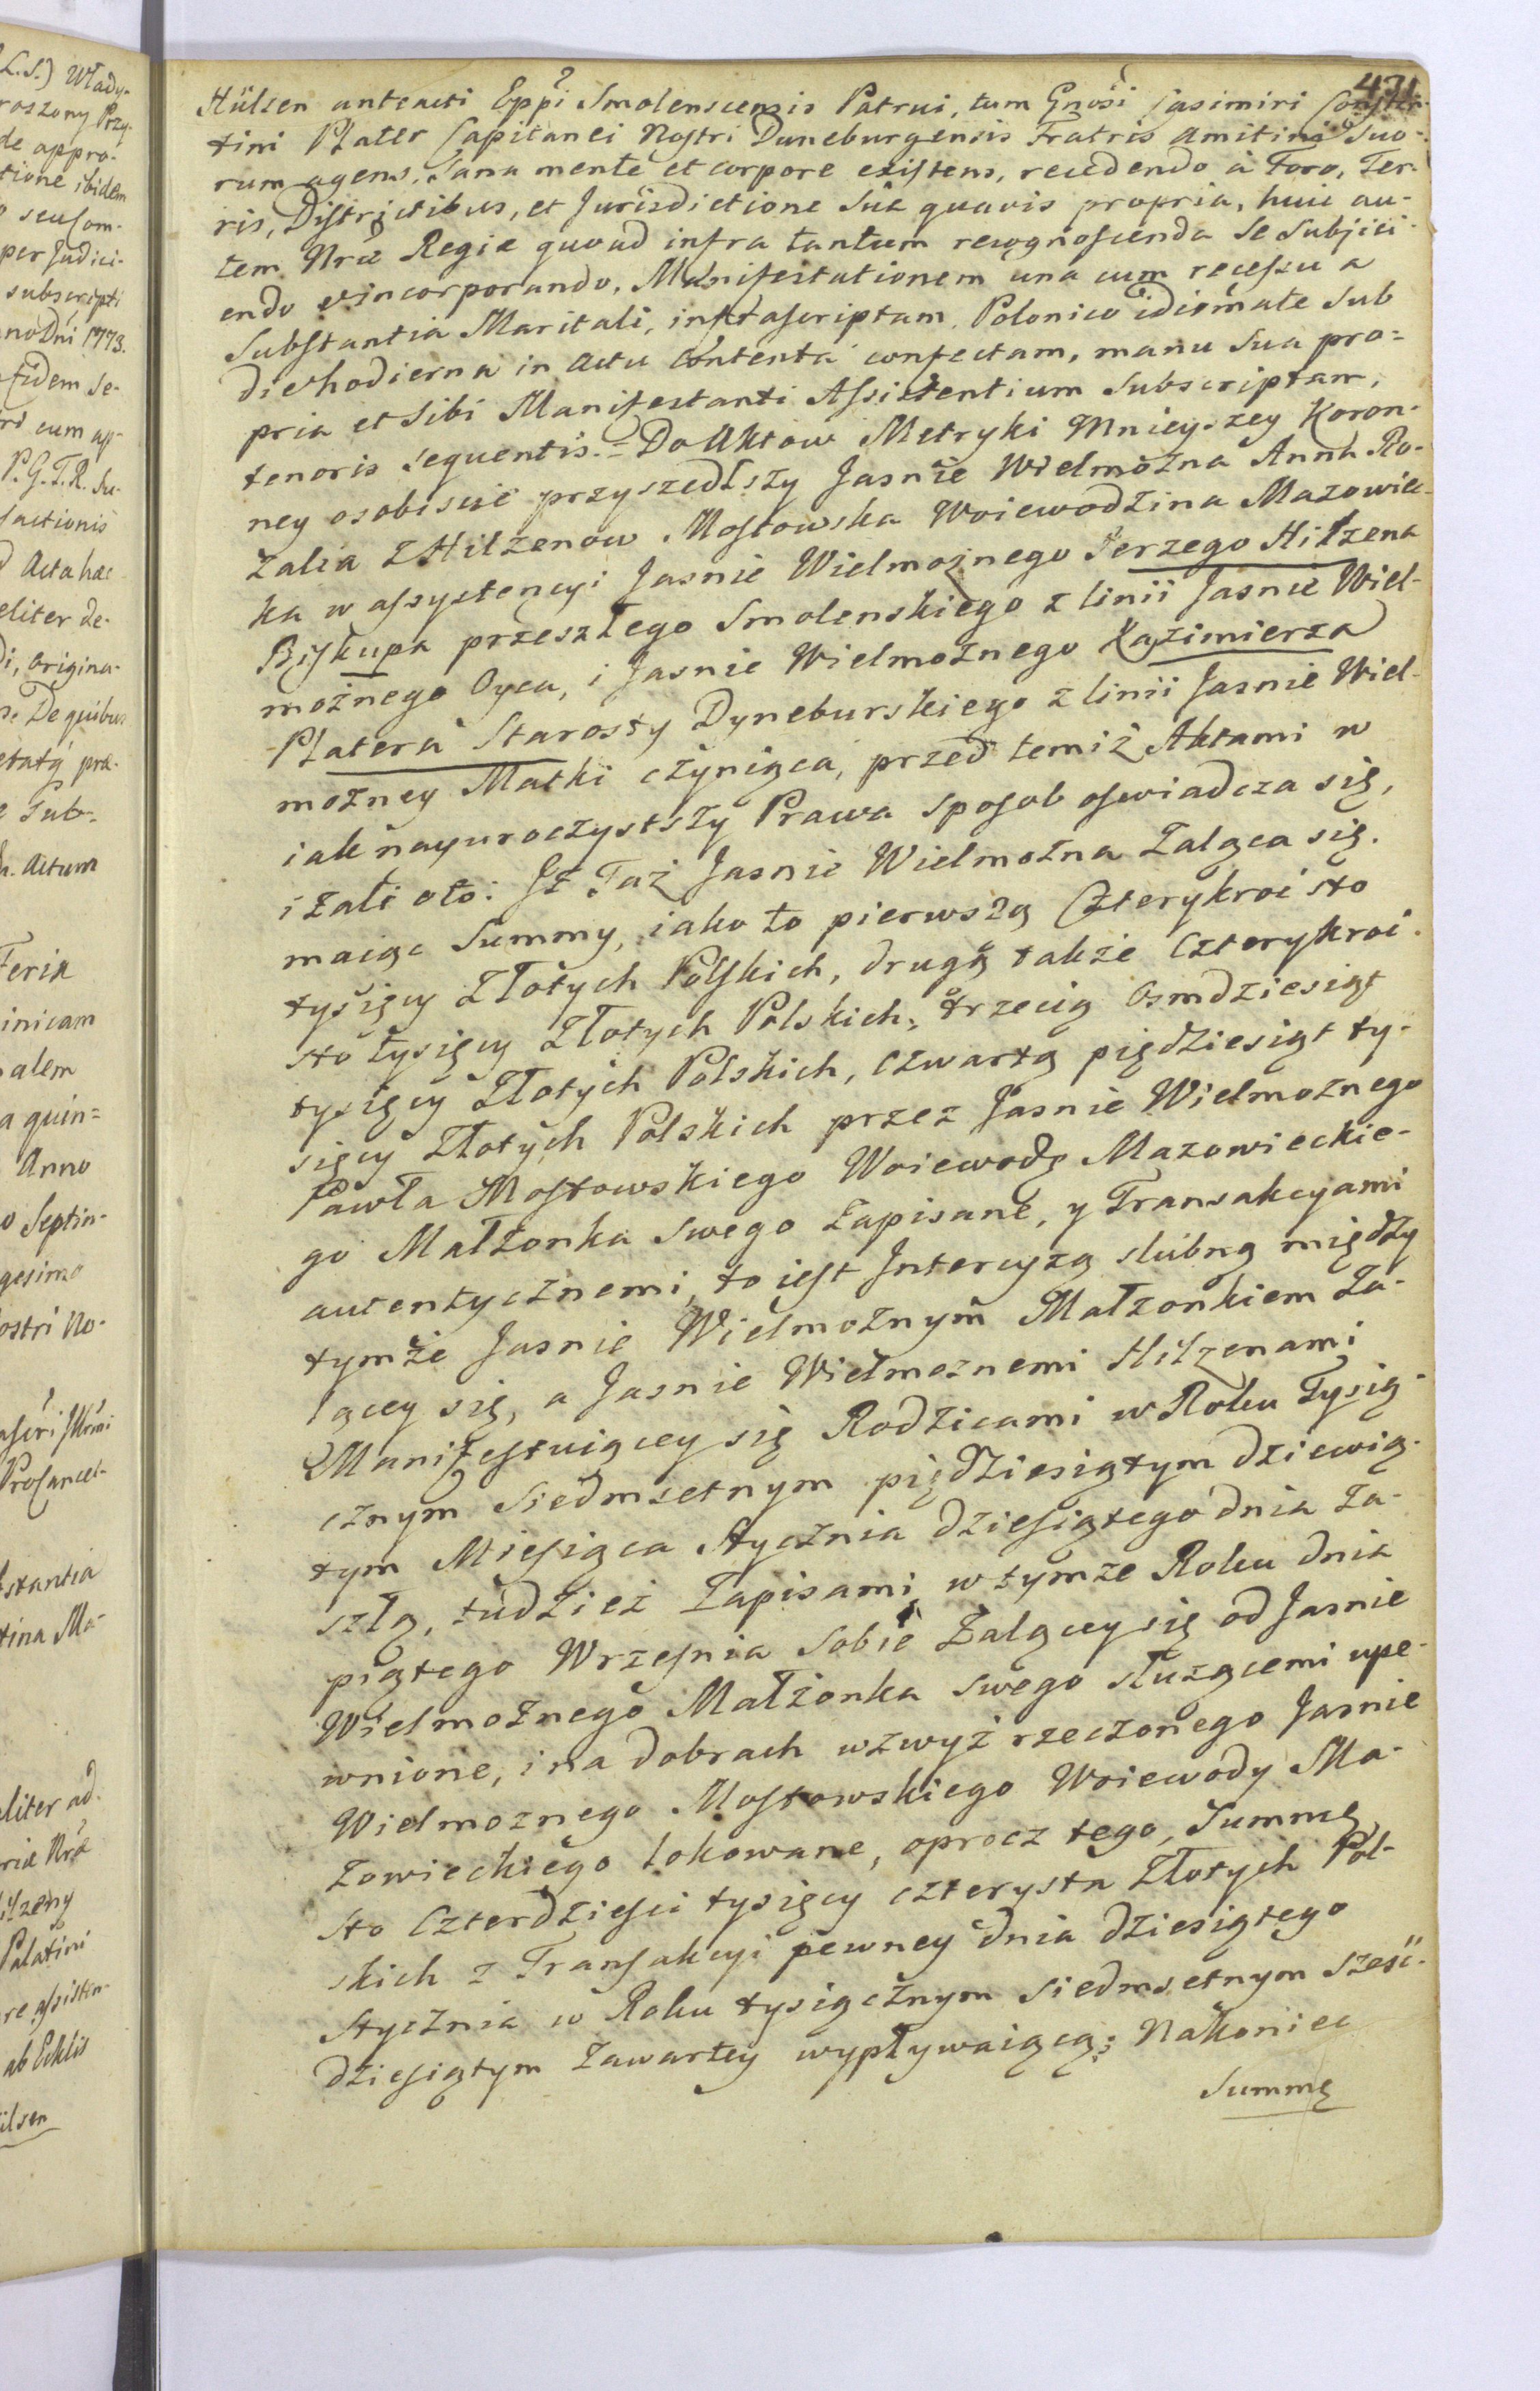 471
Hülsen anteacti Eppi Smolenscensis Patrui, tum Gnosi Casimiri Constan-
tini Plater Capitanei Nostri Duneburgensis Fratris Amitini Suo-
rum agens. Sana mente et corpore existens, recedendo à Foro, Ter-
ris, Districtibus, et Jurisdictione Sua quavis propria, huic au-
tem Nræ Regiæ quoad infra tantum recognoscenda Se Subjici-
endo et incorporando, Manifestationem una cum recessu a
Substantia Maritali, infrascriptam, Polonico idiomate Sub
die hodierna in Actu Contenta confectam, manu Sua pro-
pria et Sibi Manifestanti Assistentium Subscriptam,
tenoris sequentis. = Do Aktow Metryki Mnieyszey Koron-
ney osobiscie przyszedłszy Jasnie Wielmożna Anna Ro-
zalia z Hilzenow Mostowska Woiewodzina Mazowiec-
ka w assystencyi Jasnie Wielmożnego Jerzego Hilzena
Biskupa przeszłego Smolenskiego z linii Jasnie Wiel-
możnego Oyca, i Jasnie Wielmożnego Kazimierza
Platera Starosty Dyneburskiego z linii Jasnie Wiel-
możney Matki czyniąca, przed temiż Aktami w
iak nayuroczystszy Prawa sposob oswiadcza się,
i żali oto: Iż Taż Jasnie Wielmożna Żaląca się.
maiąc Summy, iako to pierwszą Czterykroć sto
tysięcy Złotych Polskich, drugą także Czterykroć
sto tysięcy Złotych Polskich, trzecią Osmdziesiąt
tysięcy Złotych Polskich, czwartą pięćdziesiąt ty-
sięcy Złotych Polskich przez Jasnie Wielmożnego
Pawła Mostowskiego Woiewodę Mazowieckie-
go Małżonka swego zapisane, y Transakcyami
autentycznemi, to iest Intercyzą slubną między
tymże Jasnie Wielmożnym Małżonkiem Ża-
lącey się, a Jasnie Wielmożnemi Hilzenami
Manifestuiącey się Rodzicami w Roku Tysią-
cznym Siedmsetnym pięćdziesiątym dziewią-
tym Miesiąca Stycznia dziesiątego dnia za-
szłą, tudzież Zapisami w tymże Roku dnia
piątego Wrzesnia Sobie Żalącey się od Jasnie
Wielmożnego Małżonka swego służącemi upe-
wnione, i na dobrach wzwyż rzeczonego Jasnie
Wielmożnego Mostowskiego Woiewody Ma-
zowieckiego lokowane, oprocz tego, Summę
Sto Czterdziesci tysięcy czterysta Złotych Pol-
skich z Transakcyi pewney dnia dziesiątego
Stycznia w Roku tysiącznym siedmsetnym sześć-
dziesiątym zawartey wypływaiącą; Nakoniec
Summę